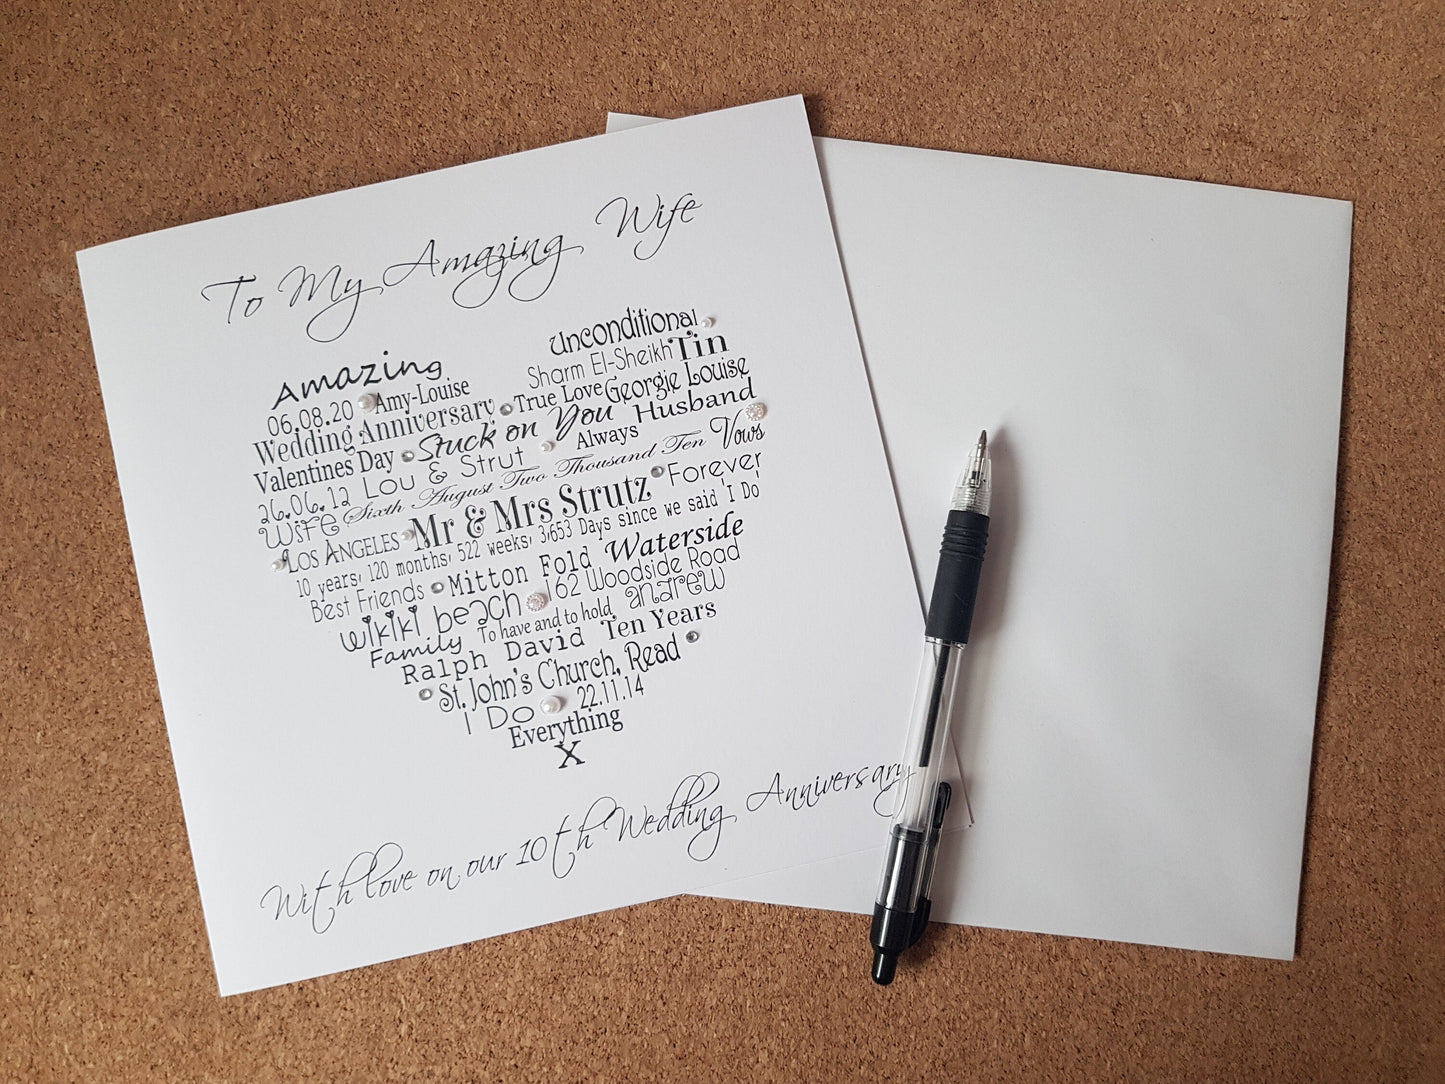 To My Amazing Wife
Amazing
Unconditional
06.08.20 Amy-Louise
Sharm El-Sheikh Tin
Wedding Anniversary True Love Georgie Louise
Valentines Day Stuck on You Husband
26.06.12 Lou & Strut Always Vows
Wife Sixth August Two Thousand Ten Forever
Los Angeles Mr & Mrs Strutz
10 years, 120 months, 522 weeks, 3,653 Days since we said 'I Do'
Best Friends Mitton Fold Waterside
wikiki beach 162 Woodside Road
Family To have and to hold andrew
Ralph David Ten Years
St. John's Church, Read
I Do 22.11.14
Everything
X
With love on our 10th Wedding Anniversary